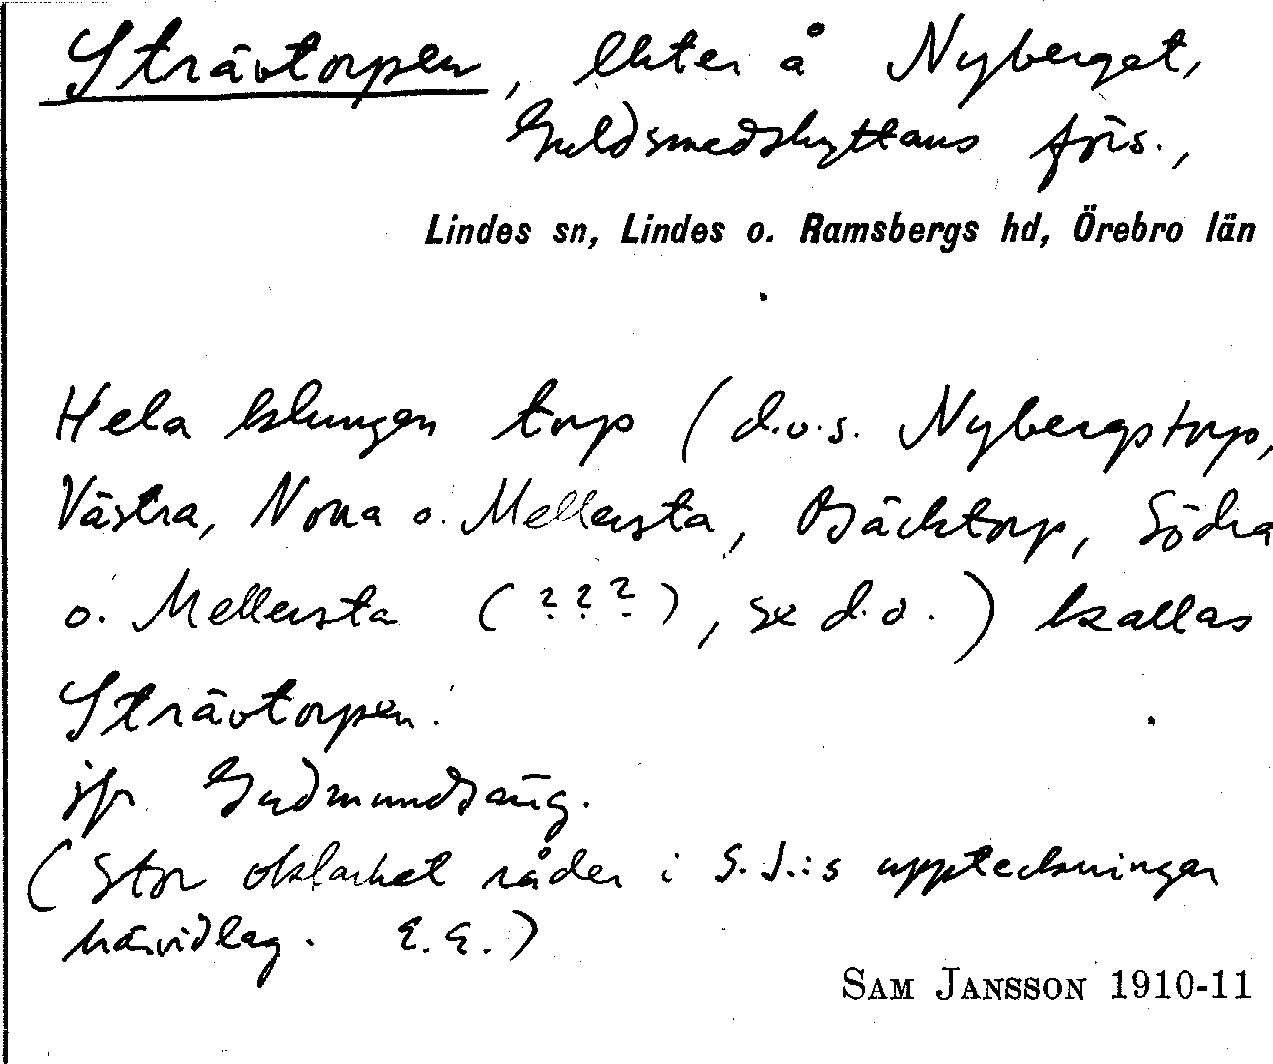 Strävtorpen, lhter å Nyberget,
Guldsmedshyttans förs.,
Lindes sn, Lindes o. Ramsbergs hd, Örebro län
Hela klungen torp (d.v.s. Nybergstorp,
Västra, Norra o. Mellersta, Bäcktorp, Södra
o. Mellersta (???), se d.o.) kallas
Strävtorpen.
jfr Gudmundsäng.
(Stor oklarhet råder i S.J.:s uppteckningar
härvidlag. E.E.)
SAM JANSSON 1910-11